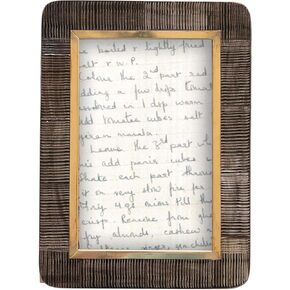 be boiled & lightly fried
salt & W.P.
Colour the 2nd part red
adding a few drps tomat
powdered in 1 dsp warm
add tomatoe cubes salt
garam masala.
Leave the 3rd part wh
also add panir cubes
Shake each part thorou
it on very slow fire for
Dry 4 qs onions till the
crisp. Remove from ghee
fry almonds, cashew